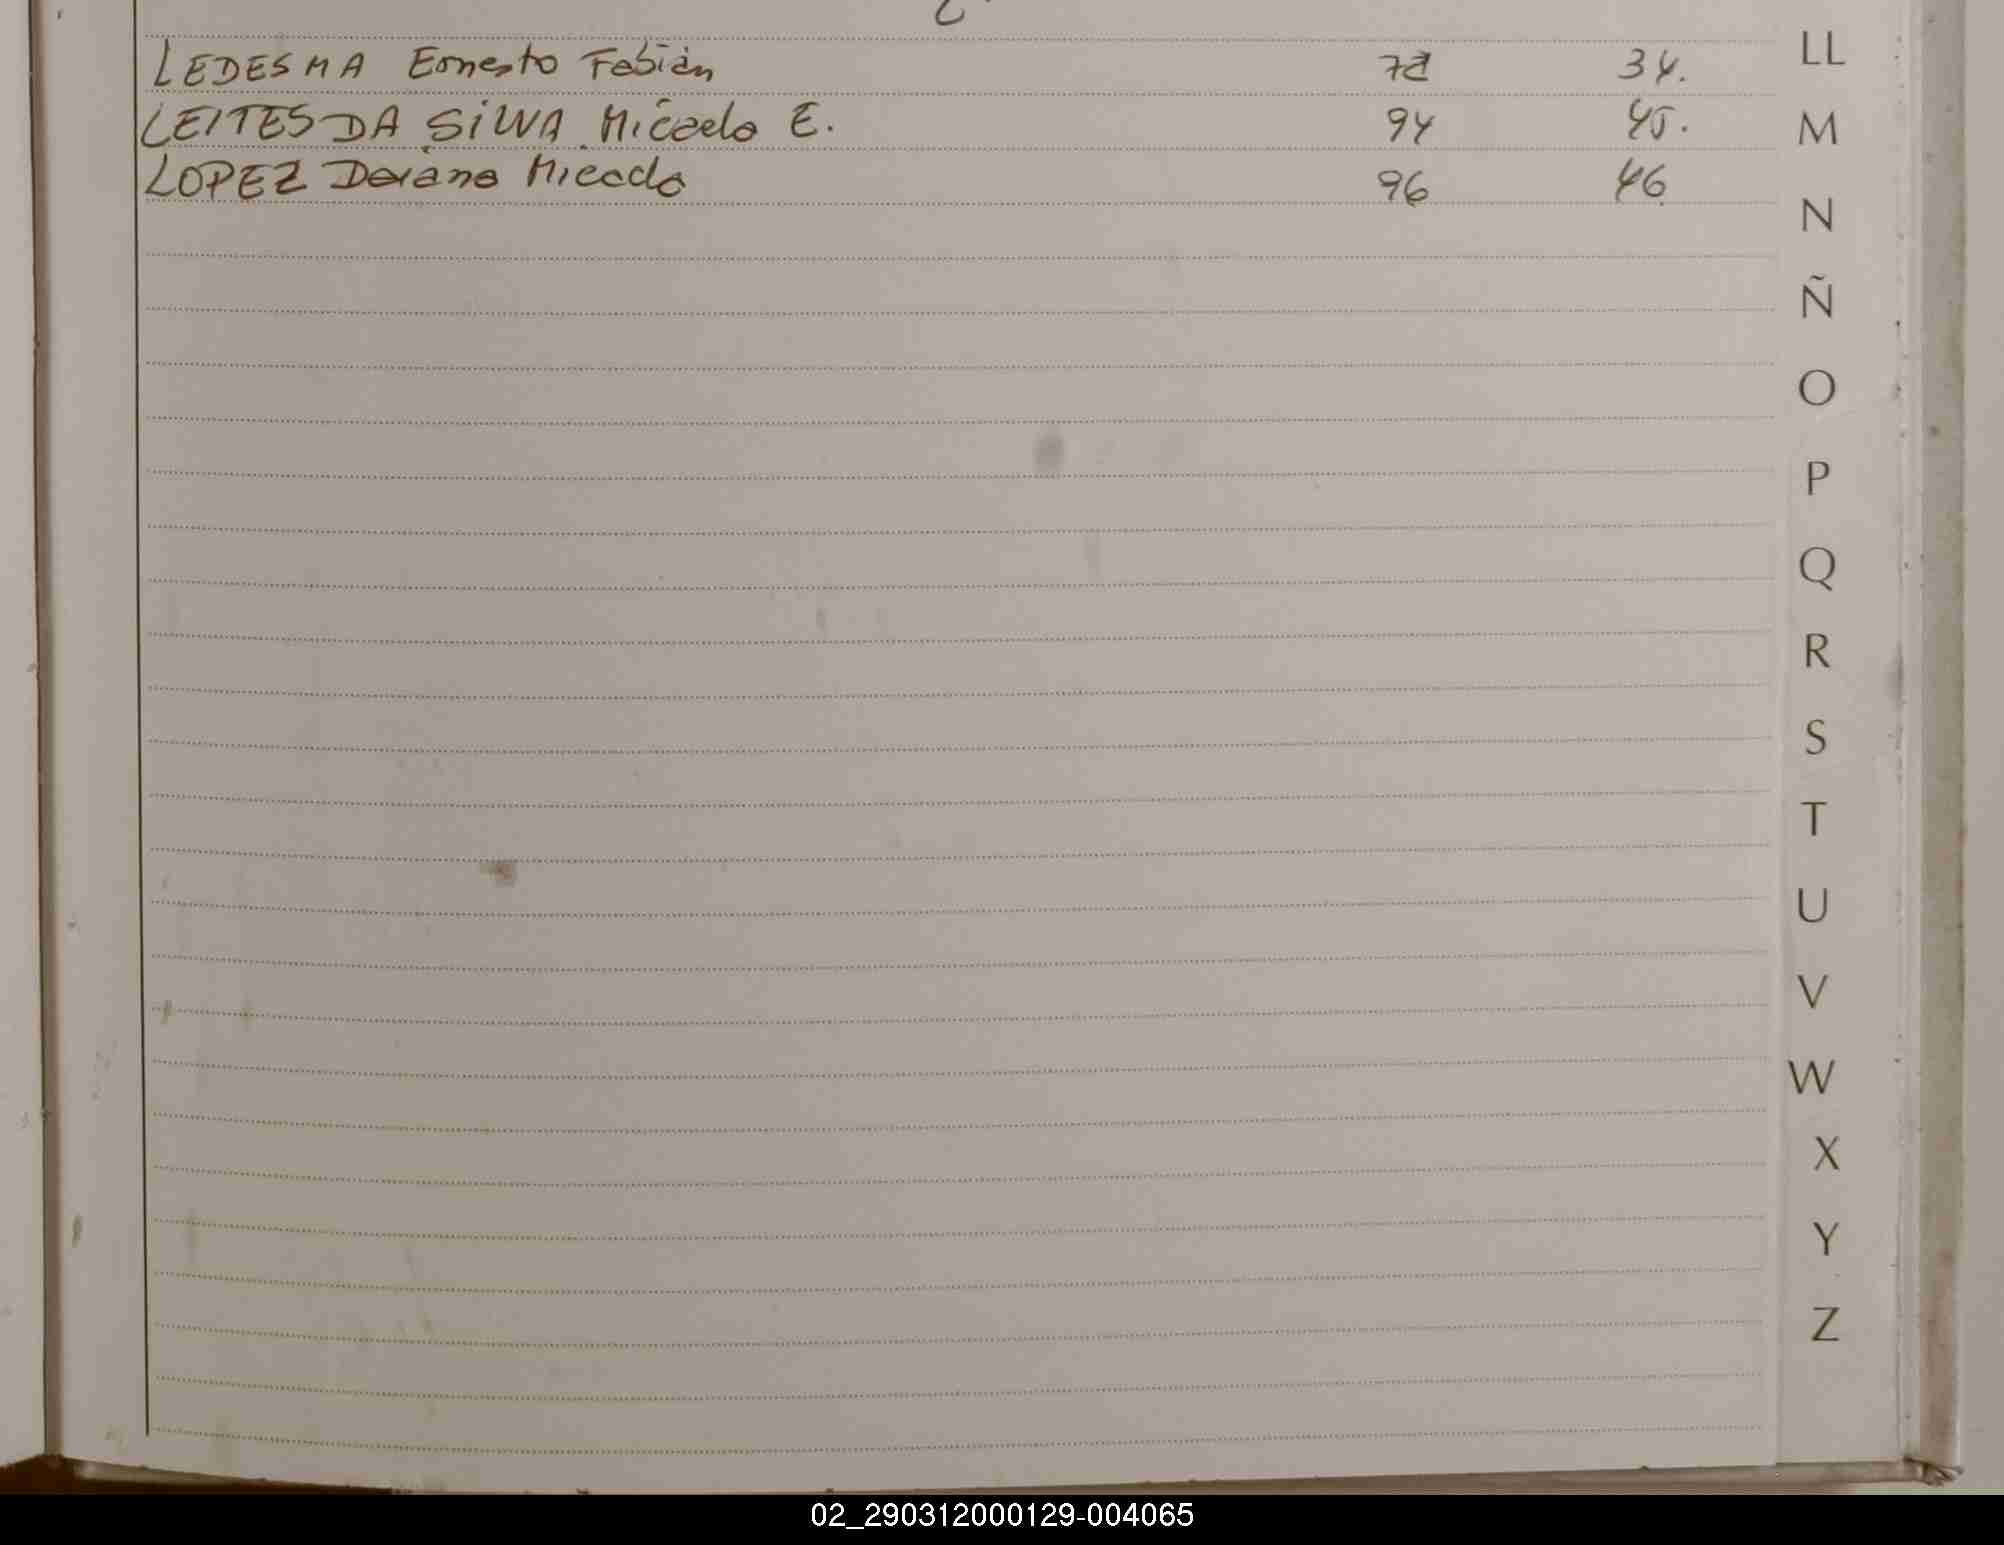 LEDESMA Ernesto Fabián 34.
LEITES DA SILVA Micaela E. 94 45.
LOPEZ Micaela 96 46
LL
M
N
Ñ
O
P
Q
R
S
T
U
V
W
X
Y
Z
02_290312000129-004065